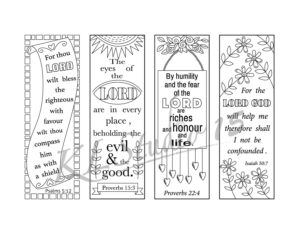 For thou
LORD
wilt bless
the
righteous
with
favour
wilt thou
compass
him
as with
a shield
Psalms 5:12
The
eyes of
the
LORD
are in every
place,
beholding the
evil &
the
good.
Proverbs 15:3
By humility
and the fear
of the
LORD
are
riches
and
honour
and
life.
Proverbs 22:4
For the
LORD GOD
will help me
therefore shall
I not be
confounded.
Isaiah 50:7